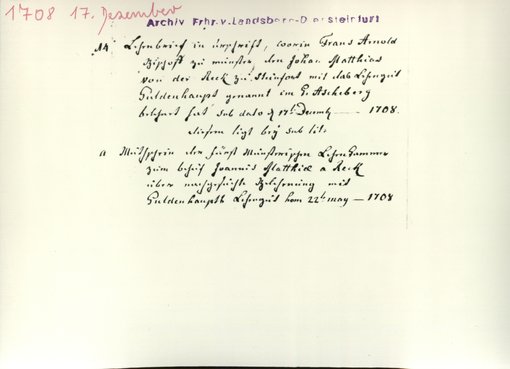 1708 17. Dezember
Archiv Frhr.v.Landsberg-D ersteinfurt
14 Lehnbrief in uhrschrift, worin Frans Arnold
Bischoff zu münster, den Johan Matthias
von der Reck zu Steinfort mit das Lehngut
Guldenhaupt genannt im G. Ascheberg
belehnt hat sub dato d 17t Decemb 1708.
diesem ligt bey sub lit.
a Muthschein der fürst Munsterischen Lehn Cammer
zum behuf Joannis Matthiæ a Reck
über nachgesuchte Belehnung mit
Guldenhaupts Lehngut vom 22t may — 1708